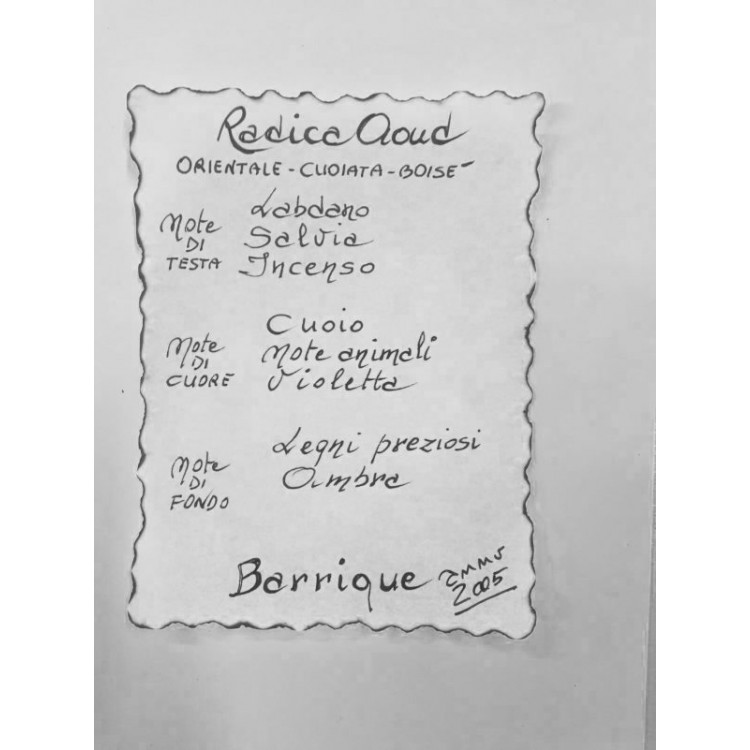 Radica Aoud
ORIENTALE - CUOIATA - BOISÉ
Note DI TESTA
Labdano
Salvia
Incenso
Note DI CUORE
Cuoio
Note animali
Violetta
Note DI FONDO
Legni preziosi
Ambra
Barrique
2005